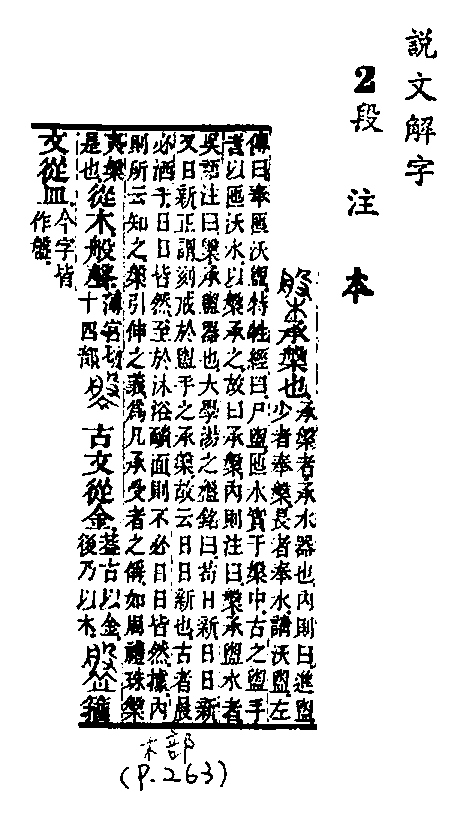 說文解字
2段注本
槃承槃也承槃者承水器也內則曰進盥
少者奉槃長者奉水請沃盥左
傳曰奉匜沃盥特牲經曰尸盥匜水實于槃中古之盥手
者以匜沃水以槃承之故曰承槃內則注曰槃承盥水者
吳語注曰槃承盥器也大學湯之盤銘曰苟日新日日新
又日新正謂刻戒於盥手之承槃故云日日新也古者晨
必洒手日日皆然至於沐浴靧面則不必日日皆然據內
則所云知之槃引伸之義爲凡承受者之偁如周禮珠槃
夷槃
是也從木般聲薄官切
十四部
古文從金葢古以金
後乃以木
籒
文從皿今字皆
作盤
木部
(P.263)